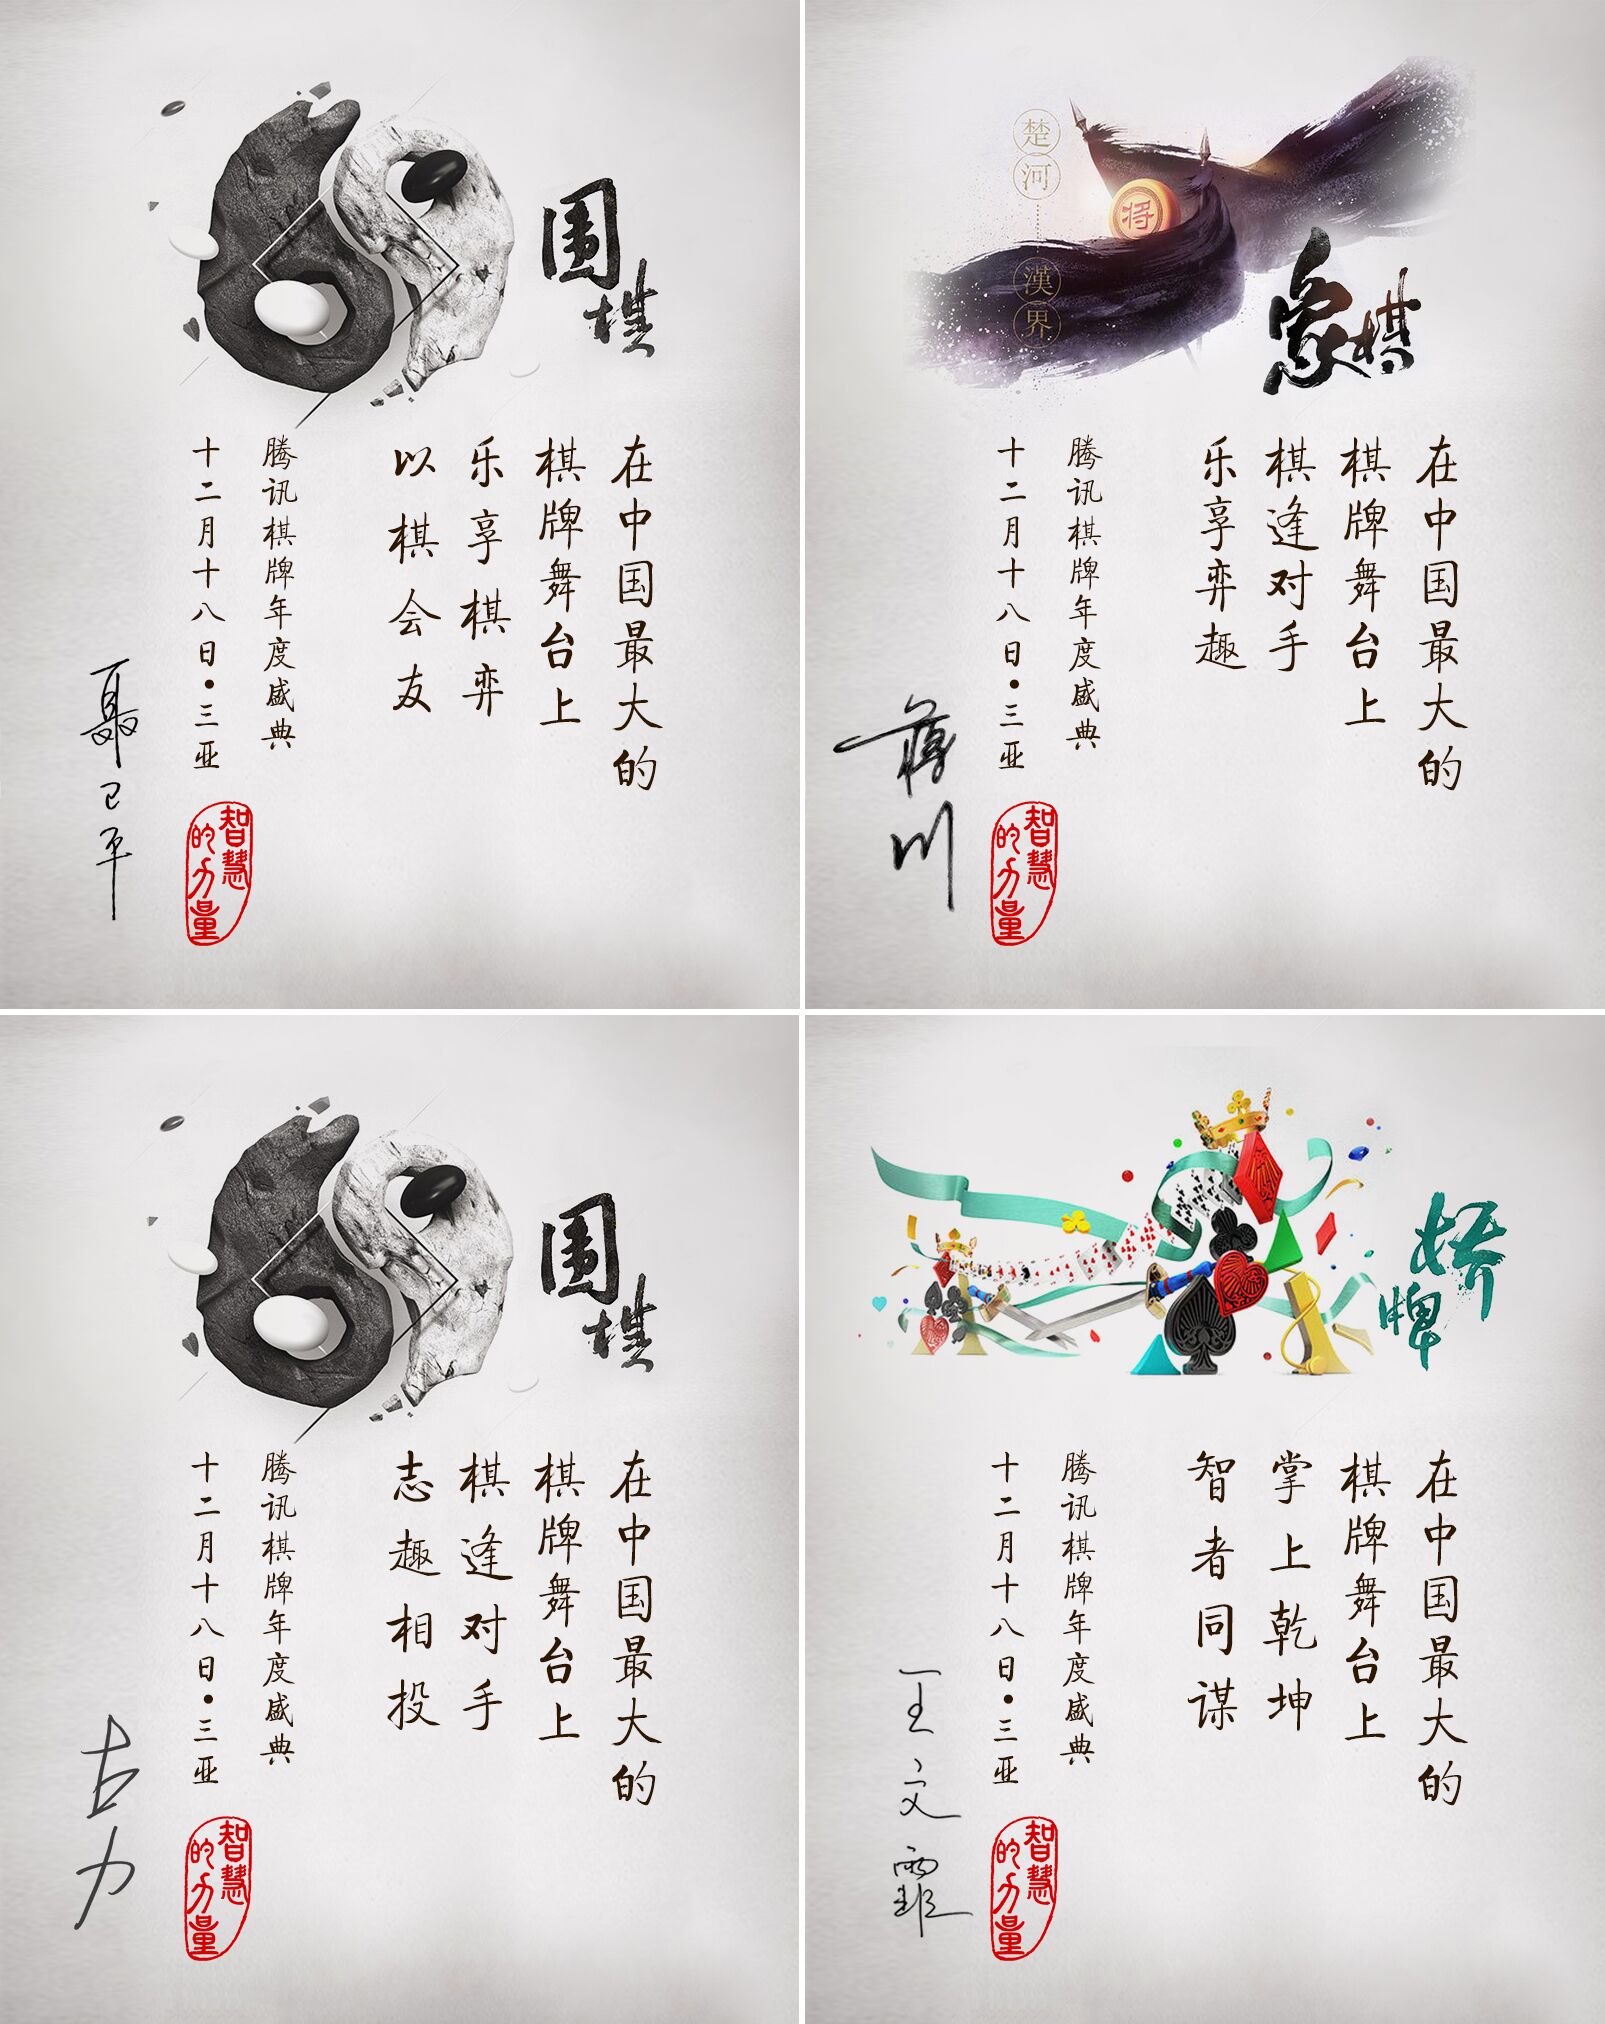 围棋
在中国最大的
棋牌舞台上
乐享棋弈
以棋会友
腾讯棋牌年度盛典
十二月十八日·三亚
智慧
的力量
聂卫平
楚河
漢界
将
象棋
在中国最大的
棋牌舞台上
棋逢对手
乐享弈趣
腾讯棋牌年度盛典
十二月十八日·三亚
智慧
的力量
蒋川
围棋
在中国最大的
棋牌舞台上
棋逢对手
志趣相投
腾讯棋牌年度盛典
十二月十八日·三亚
智慧
的力量
古力
桥牌
在中国最大的
棋牌舞台上
掌上乾坤
智者同谋
腾讯棋牌年度盛典
十二月十八日·三亚
智慧
的力量
王文霏